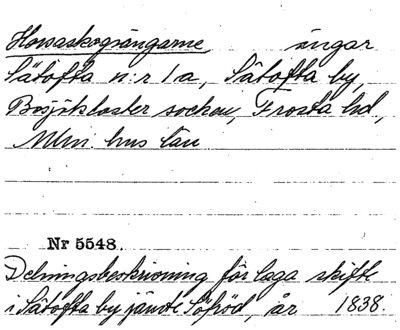 Howaskogsängarne ängar
Sätofta n:r 1a, Sätofta by,
Bosjökloster socken, Frosta hd,
Mlm. hus län
Nr 5548.
Delningsbeskrivning för laga skifte
i Sätofta by jämte Söröd, år 1838.